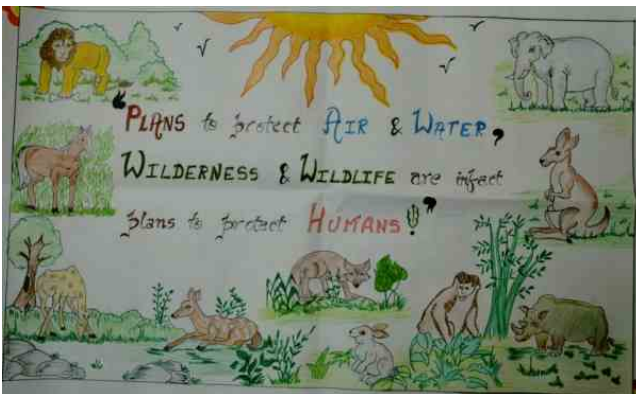 “PLANS to protect AIR & WATER,
WILDERNESS & WILDLIFE are infact
plans to protect HUMANS!”